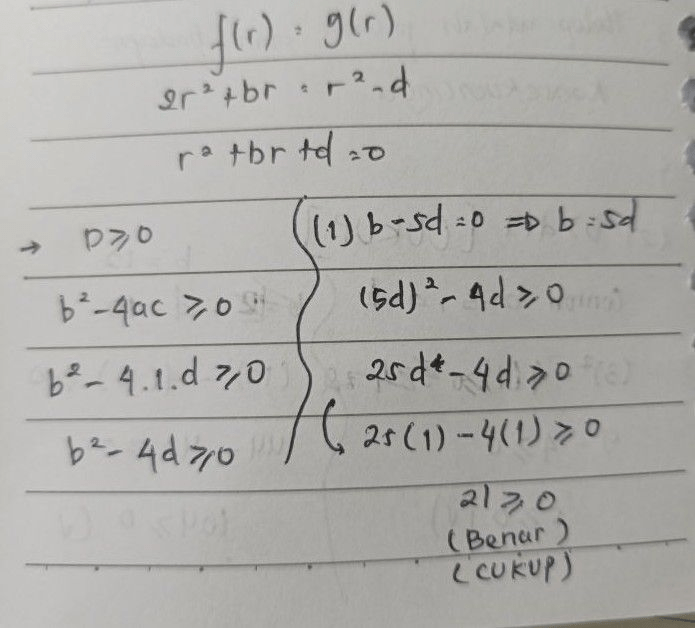 f(r) = g(r)
2r² + br = r² - d
r² + br + d = 0
→ D ≥ 0
b² - 4ac ≥ 0
b² - 4.1.d ≥ 0
b² - 4d ≥ 0
(1) b - 5d = 0 ⇒ b = 5d
(5d)² - 4d ≥ 0
25d² - 4d ≥ 0
25(1) - 4(1) ≥ 0
21 ≥ 0
(Benar)
(CUKUP)